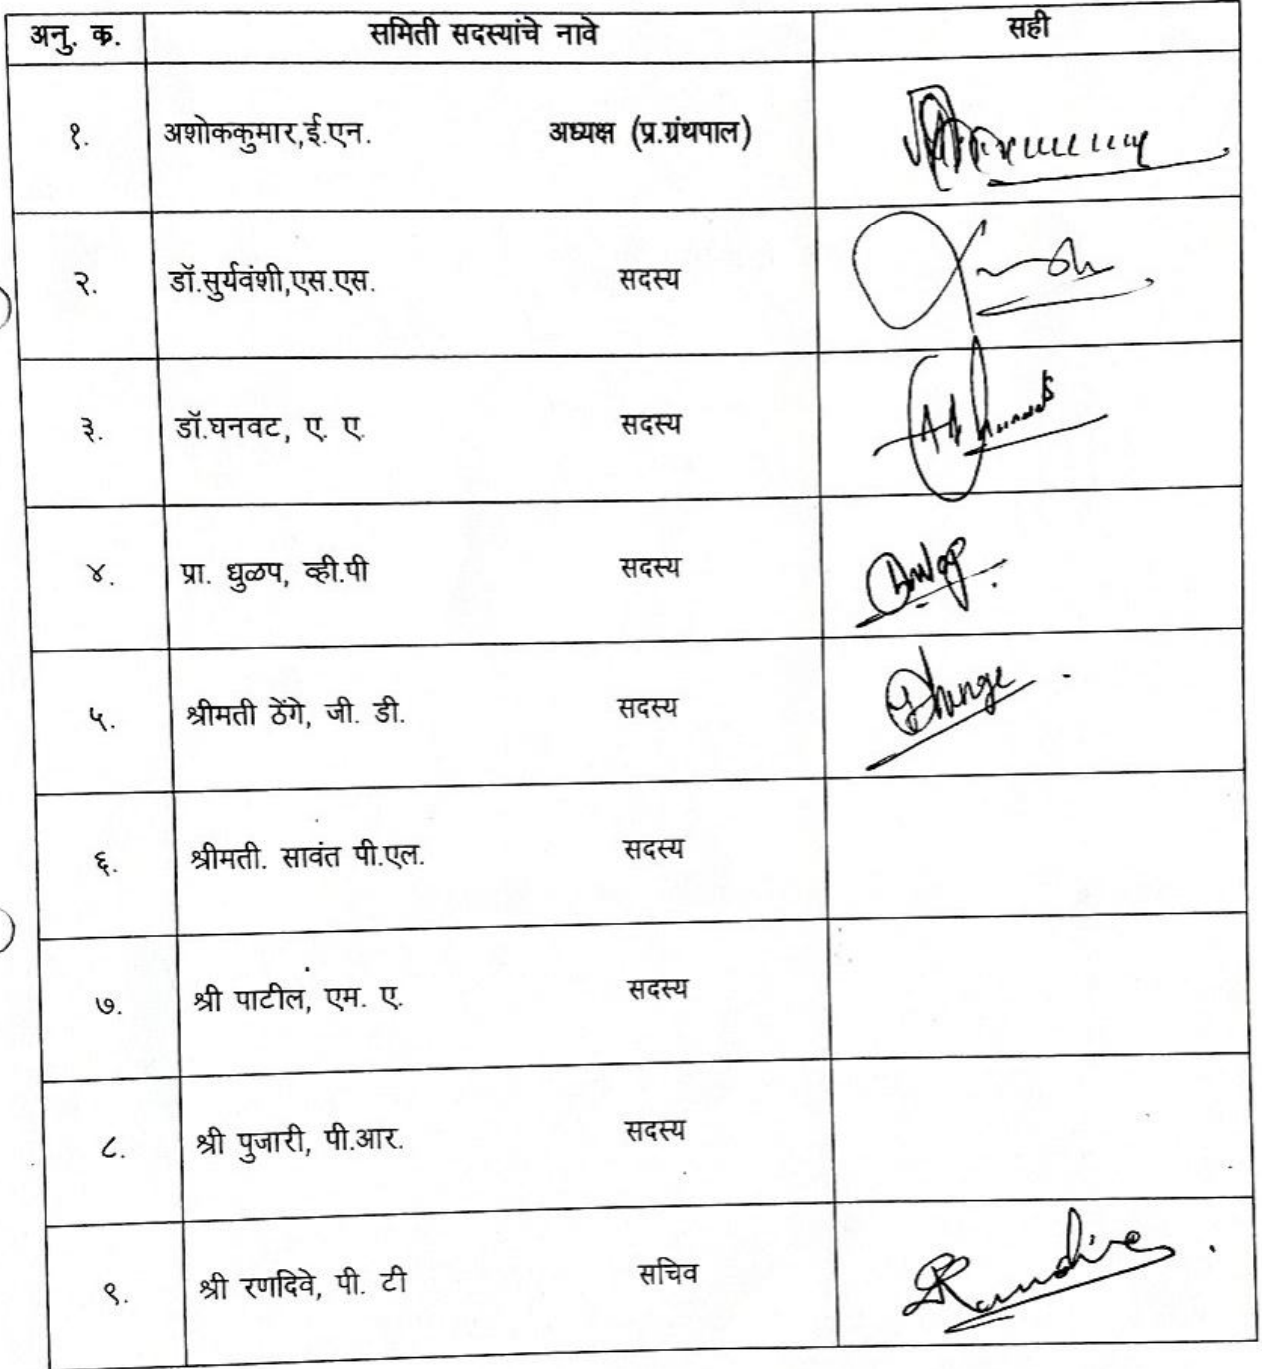 अनु. क्र. समिती सदस्यांचे नावे सही
१. अशोककुमार,ई.एन. अध्यक्ष (प्र.ग्रंथपाल)
२. डॉ.सुर्यवंशी,एस.एस. सदस्य
३. डॉ.घनवट, ए. ए. सदस्य
४. प्रा. धुळप, व्ही.पी सदस्य
५. श्रीमती ठेंगे, जी. डी. सदस्य
६. श्रीमती. सावंत पी.एल. सदस्य
७. श्री पाटील, एम. ए. सदस्य
८. श्री पुजारी, पी.आर. सदस्य
९. श्री रणदिवे, पी. टी सचिव